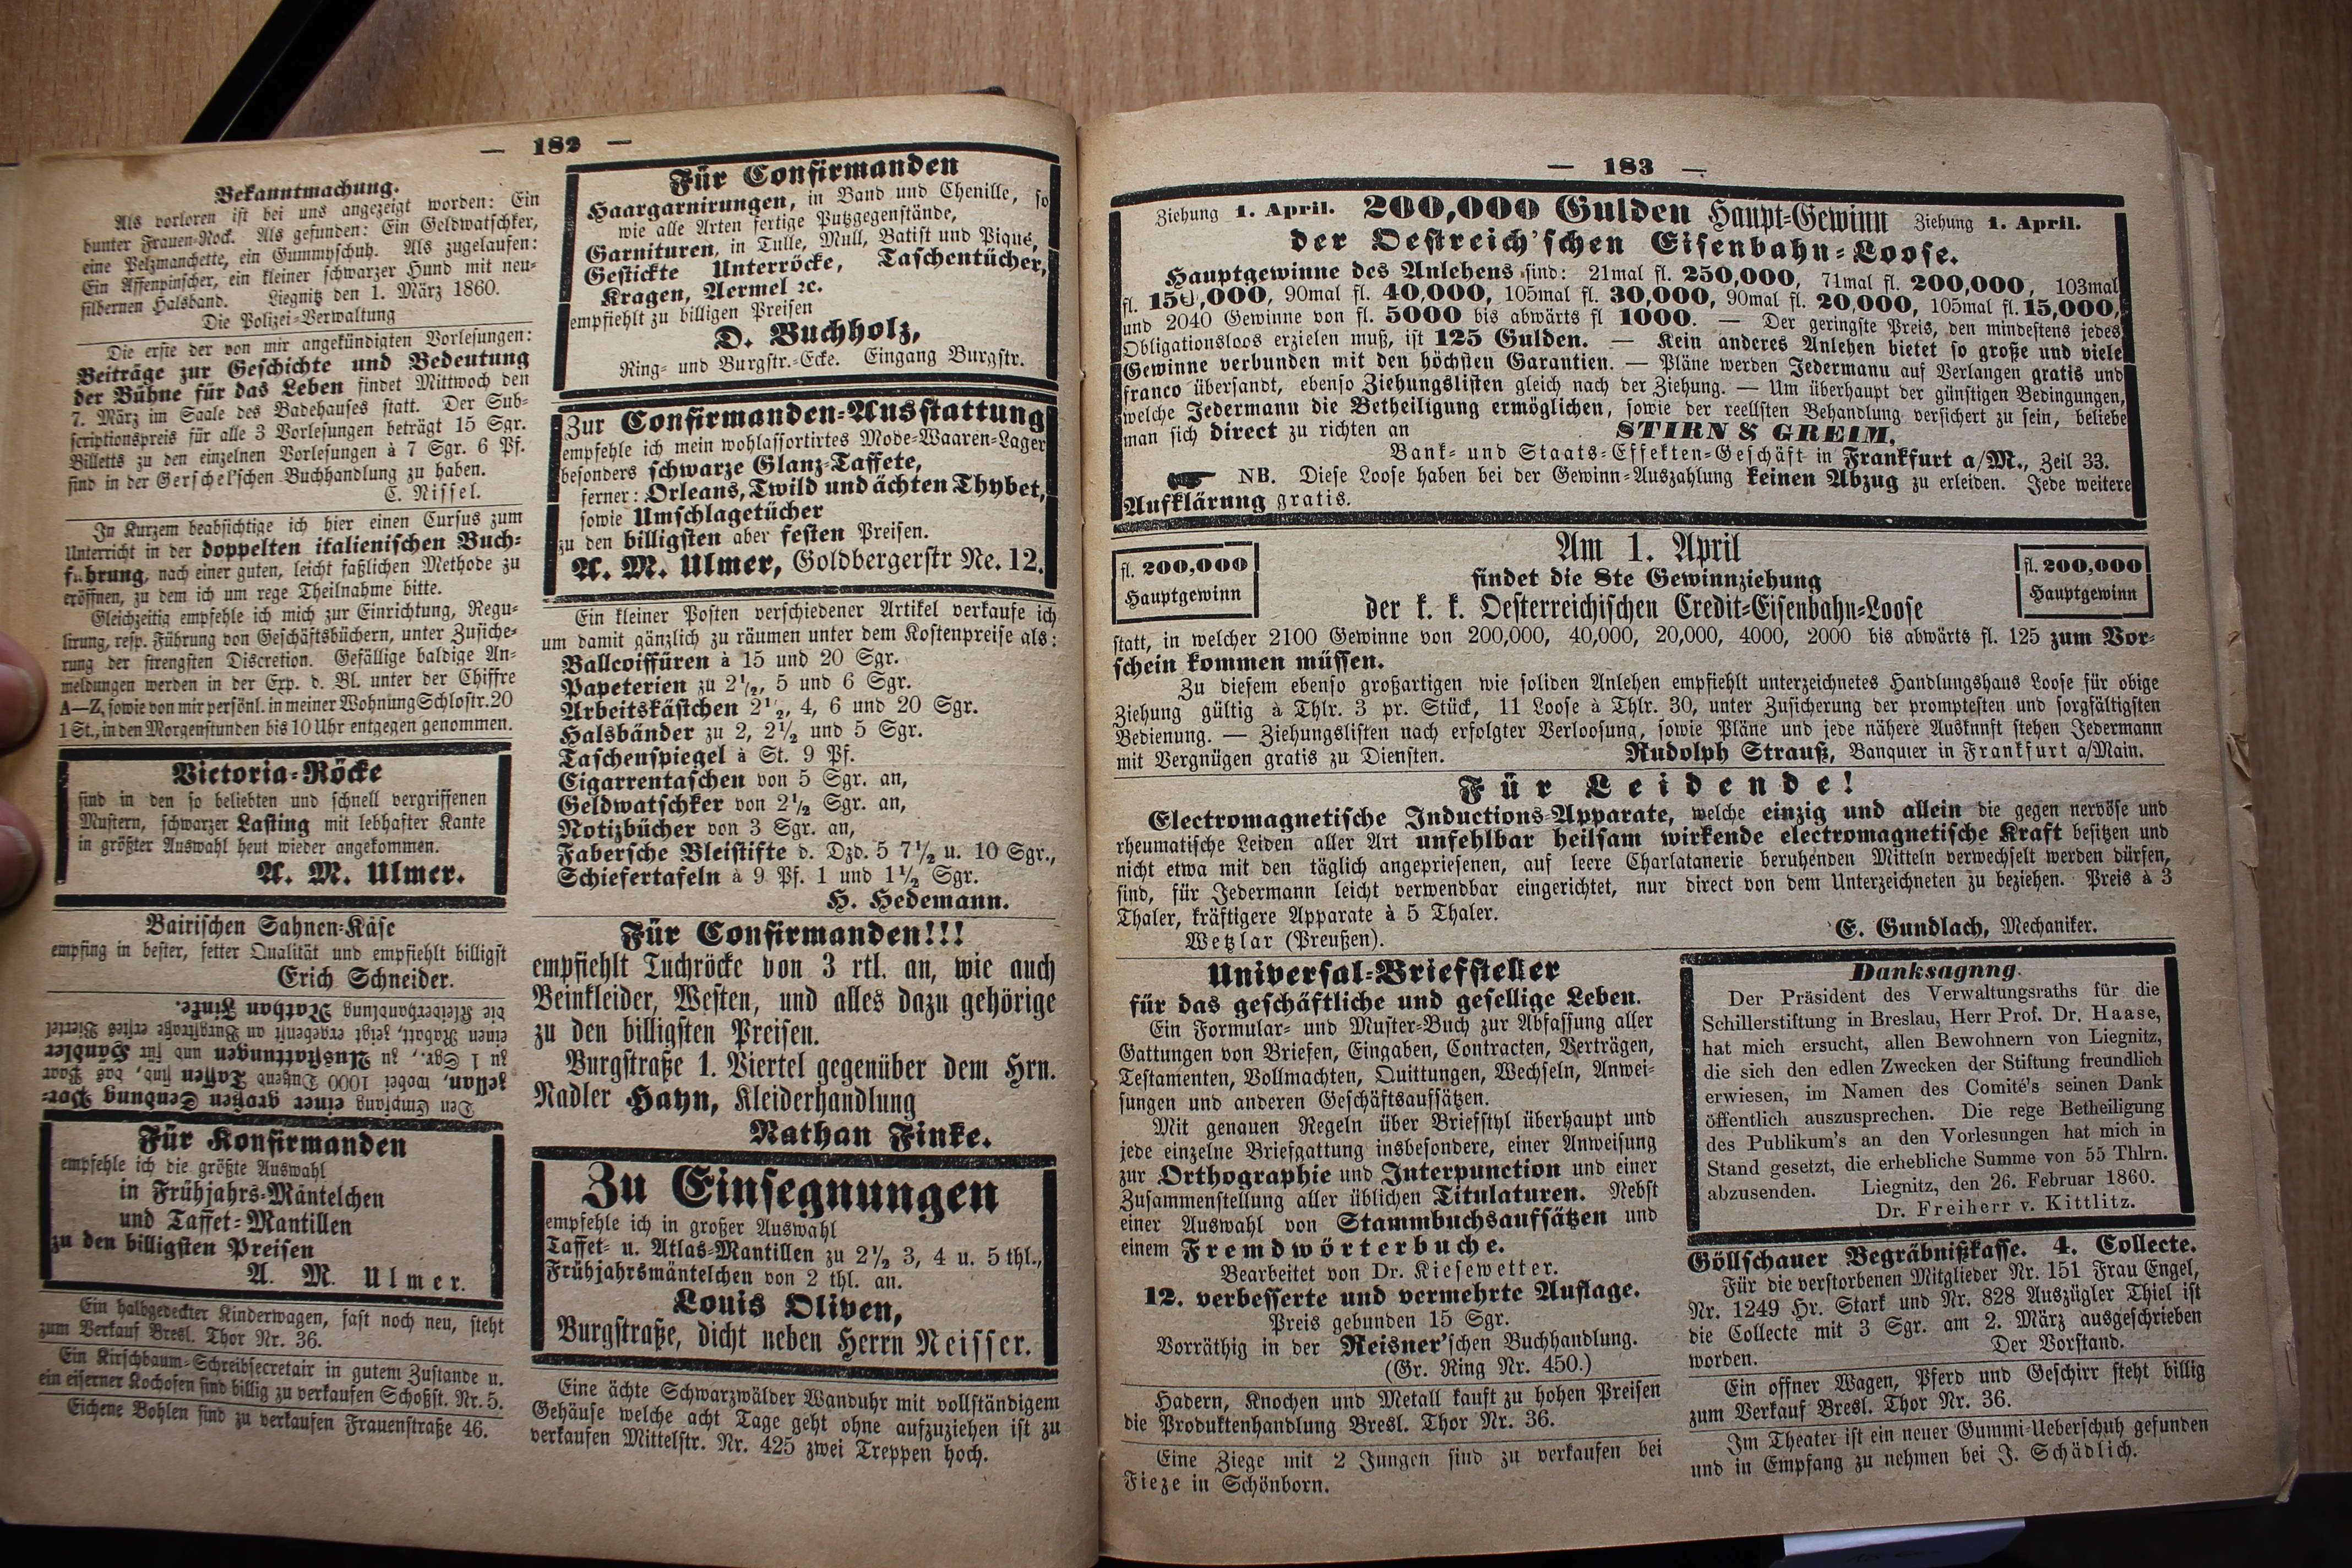 — 182 —
Bekanntmachung.
Als verloren ist bei uns angezeigt worden: Ein
bunter Frauen-Rock. Als gefunden: Ein Geldwatschker,
eine Pelzmanchette, ein Gummyschuh. Als zugelaufen:
Ein Affenpinscher, ein kleiner schwarzer Hund mit neu-
silbernen Halsband. Liegnitz den 1. März 1860.
Die Polizei-Verwaltung
Die erste der von mir angekündigten Vorlesungen:
Beiträge zur Geschichte und Bedeutung
der Bühne für das Leben findet Mittwoch den
7. März im Saale des Badehauses statt. Der Sub-
scriptionspreis für alle 3 Vorlesungen beträgt 15 Sgr.
Billetts zu den einzelnen Vorlesungen à 7 Sgr. 6 Pf.
sind in der Gerschel'schen Buchhandlung zu haben.
C. Nissel.
In Kurzem beabsichtige ich hier einen Cursus zum
Unterricht in der doppelten italienischen Buch-
führung, nach einer guten, leicht faßlichen Methode zu
eröffnen, zu dem ich um rege Theilnahme bitte.
Gleichzeitig empfehle ich mich zur Einrichtung, Regu-
lirung, resp. Führung von Geschäftsbüchern, unter Zusiche-
rung der strengsten Discretion. Gefällige baldige An-
meldungen werden in der Exp. d. Bl. unter der Chiffre
A—Z, sowie von mir persönl. in meiner Wohnung Schloßstr. 20
1 St., in den Morgenstunden bis 10 Uhr entgegen genommen.
Victoria-Röcke
sind in den so beliebten und schnell vergriffenen
Mustern, schwarzer Lasting mit lebhafter Kante
in größter Auswahl heut wieder angekommen.
A. M. Ulmer.
Bairischen Sahnen-Käse
empfing in bester, fetter Qualität und empfiehlt billigst
Erich Schneider.
Den Empfang einer großen Sendung Por-
zellan, wobei 1000 Dutzend Tassen sind, das Paar
zu 1 Sgr., zu Ausstattungen und für Händler
einen Rabatt, zeigt ergebenst an Burgstraße erstes Viertel
die Kleiderhandlung Nathan Finke.
Für Konfirmanden
empfehle ich die größte Auswahl
in Frühjahrs-Mäntelchen
und Taffet-Mantillen
zu den billigsten Preisen
A. M. Ulmer.
Ein halbgedeckter Kinderwagen, fast noch neu, steht
zum Verkauf Bresl. Thor Nr. 36.
Ein Kirschbaum-Schreibsecretair in gutem Zustande u.
ein eiserner Kochofen sind billig zu verkaufen Schoßst. Nr. 5.
Eichene Bohlen sind zu verkaufen Frauenstraße 46.
Für Confirmanden
Haargarnirungen, in Band und Chenille, so
wie alle Arten fertige Putzgegenstände,
Garnituren, in Tulle, Mull, Batist und Piqué,
Gestickte Unterröcke, Taschentücher,
Kragen, Aermel ꝛc.
empfiehlt zu billigen Preisen
D. Buchholz,
Ring- und Burgstr.-Ecke. Eingang Burgstr.
Zur Confirmanden-Ausstattung
empfehle ich mein wohlassortirtes Mode-Waaren-Lager
besonders schwarze Glanz-Taffete,
ferner: Orleans, Twild und ächten Thybet,
sowie Umschlagetücher
zu den billigsten aber festen Preisen.
A. M. Ulmer, Goldbergerstr Ne. 12.
Ein kleiner Posten verschiedener Artikel verkaufe ich
um damit gänzlich zu räumen unter dem Kostenpreise als:
Ballcoiffüren à 15 und 20 Sgr.
Papeterien zu 2½, 5 und 6 Sgr.
Arbeitskästchen 2½, 4, 6 und 20 Sgr.
Halsbänder zu 2, 2½ und 5 Sgr.
Taschenspiegel à St. 9 Pf.
Cigarrentaschen von 5 Sgr. an,
Geldwatschker von 2½ Sgr. an,
Notizbücher von 3 Sgr. an,
Fabersche Bleistifte d. Dzd. 5 7½ u. 10 Sgr.,
Schiefertafeln à 9 Pf. 1 und 1½ Sgr.
H. Hedemann.
Für Confirmanden!!!
empfiehlt Tuchröcke von 3 rtl. an, wie auch
Beinkleider, Westen, und alles dazu gehörige
zu den billigsten Preisen.
Burgstraße 1. Viertel gegenüber dem Hrn.
Nadler Hayn, Kleiderhandlung
Nathan Finke.
Zu Einsegnungen
empfehle ich in großer Auswahl
Taffet- u. Atlas-Mantillen zu 2½ 3, 4 u. 5 thl.,
Frühjahrsmäntelchen von 2 thl. an.
Louis Oliven,
Burgstraße, dicht neben Herrn Neisser.
Eine ächte Schwarzwälder Wanduhr mit vollständigem
Gehäuse welche acht Tage geht ohne aufzuziehen ist zu
verkaufen Mittelstr. Nr. 425 zwei Treppen hoch.
— 183 —
Ziehung 1. April. 200,000 Gulden Haupt-Gewinn Ziehung 1. April.
der Oestreich'schen Eisenbahn-Loose.
Hauptgewinne des Anlehens sind: 21mal fl. 250,000, 71mal fl. 200,000, 103mal
fl. 150,000, 90mal fl. 40,000, 105mal fl. 30,000, 90mal fl. 20,000, 105mal fl. 15,000,
und 2040 Gewinne von fl. 5000 bis abwärts fl 1000. — Der geringste Preis, den mindestens jedes
Obligationsloos erzielen muß, ist 125 Gulden. — Kein anderes Anlehen bietet so große und viele
Gewinne verbunden mit den höchsten Garantien. — Pläne werden Jedermann auf Verlangen gratis und
franco übersandt, ebenso Ziehungslisten gleich nach der Ziehung. — Um überhaupt der günstigen Bedingungen,
welche Jedermann die Betheiligung ermöglichen, sowie der reellsten Behandlung versichert zu sein, beliebe
man sich direct zu richten an STIRN & GREIM,
Bank- und Staats-Effekten-Geschäft in Frankfurt a/M., Zeil 33.
NB. Diese Loose haben bei der Gewinn-Auszahlung keinen Abzug zu erleiden. Jede weitere
Aufklärung gratis.
fl. 200,000
Hauptgewinn
Am 1. April
findet die 8te Gewinnziehung
der k. k. Oesterreichischen Credit-Eisenbahn-Loose
fl. 200,000
Hauptgewinn
statt, in welcher 2100 Gewinne von 200,000, 40,000, 20,000, 4000, 2000 bis abwärts fl. 125 zum Vor-
schein kommen müssen.
Zu diesem ebenso großartigen wie soliden Anlehen empfiehlt unterzeichnetes Handlungshaus Loose für obige
Ziehung gültig à Thlr. 3 pr. Stück, 11 Loose à Thlr. 30, unter Zusicherung der promptesten und sorgfältigsten
Bedienung. — Ziehungslisten nach erfolgter Verloosung, sowie Pläne und jede nähere Auskunft stehen Jedermann
mit Vergnügen gratis zu Diensten. Rudolph Strauß, Banquier in Frankfurt a/Main.
Für Leidende!
Electromagnetische Inductions-Apparate, welche einzig und allein die gegen nervöse und
rheumatische Leiden aller Art unfehlbar heilsam wirkende electromagnetische Kraft besitzen und
nicht etwa mit den täglich angepriesenen, auf leere Charlatanerie beruhenden Mitteln verwechselt werden dürfen,
sind, für Jedermann leicht verwendbar eingerichtet, nur direct von dem Unterzeichneten zu beziehen. Preis à 3
Thaler, kräftigere Apparate à 5 Thaler.
Wetzlar (Preußen). E. Gundlach, Mechaniker.
Universal-Briefsteller
für das geschäftliche und gesellige Leben.
Ein Formular- und Muster-Buch zur Abfassung aller
Gattungen von Briefen, Eingaben, Contracten, Verträgen,
Testamenten, Vollmachten, Quittungen, Wechseln, Anwei-
sungen und anderen Geschäftsaufsätzen.
Mit genauen Regeln über Briefstyl überhaupt und
jede einzelne Briefgattung insbesondere, einer Anweisung
zur Orthographie und Interpunction und einer
Zusammenstellung aller üblichen Titulaturen. Nebst
einer Auswahl von Stammbuchsaufsätzen und
einem Fremdwörterbuche.
Bearbeitet von Dr. Kiesewetter.
12. verbesserte und vermehrte Auflage.
Preis gebunden 15 Sgr.
Vorräthig in der Reisner'schen Buchhandlung.
(Gr. Ring Nr. 450.)
Hadern, Knochen und Metall kauft zu hohen Preisen
die Produktenhandlung Bresl. Thor Nr. 36.
Eine Ziege mit 2 Jungen sind zu verkaufen bei
Fieze in Schönborn.
Danksagnng.
Der Präsident des Verwaltungsraths für die
Schillerstiftung in Breslau, Herr Prof. Dr. Haase,
hat mich ersucht, allen Bewohnern von Liegnitz,
die sich den edlen Zwecken der Stiftung freundlich
erwiesen, im Namen des Comité's seinen Dank
öffentlich auszusprechen. Die rege Betheiligung
des Publikum's an den Vorlesungen hat mich in
Stand gesetzt, die erhebliche Summe von 55 Thlrn.
abzusenden. Liegnitz, den 26. Februar 1860.
Dr. Freiherr v. Kittlitz.
Göllschauer Begräbnißkasse. 4. Collecte.
Für die verstorbenen Mitglieder Nr. 151 Frau Engel,
Nr. 1249 Hr. Stark und Nr. 828 Auszügler Thiel ist
die Collecte mit 3 Sgr. am 2. März ausgeschrieben
worden. Der Vorstand.
Ein offner Wagen, Pferd und Geschirr steht billig
zum Verkauf Bresl. Thor Nr. 36.
Im Theater ist ein neuer Gummi-Ueberschuh gefunden
und in Empfang zu nehmen bei J. Schädlich.